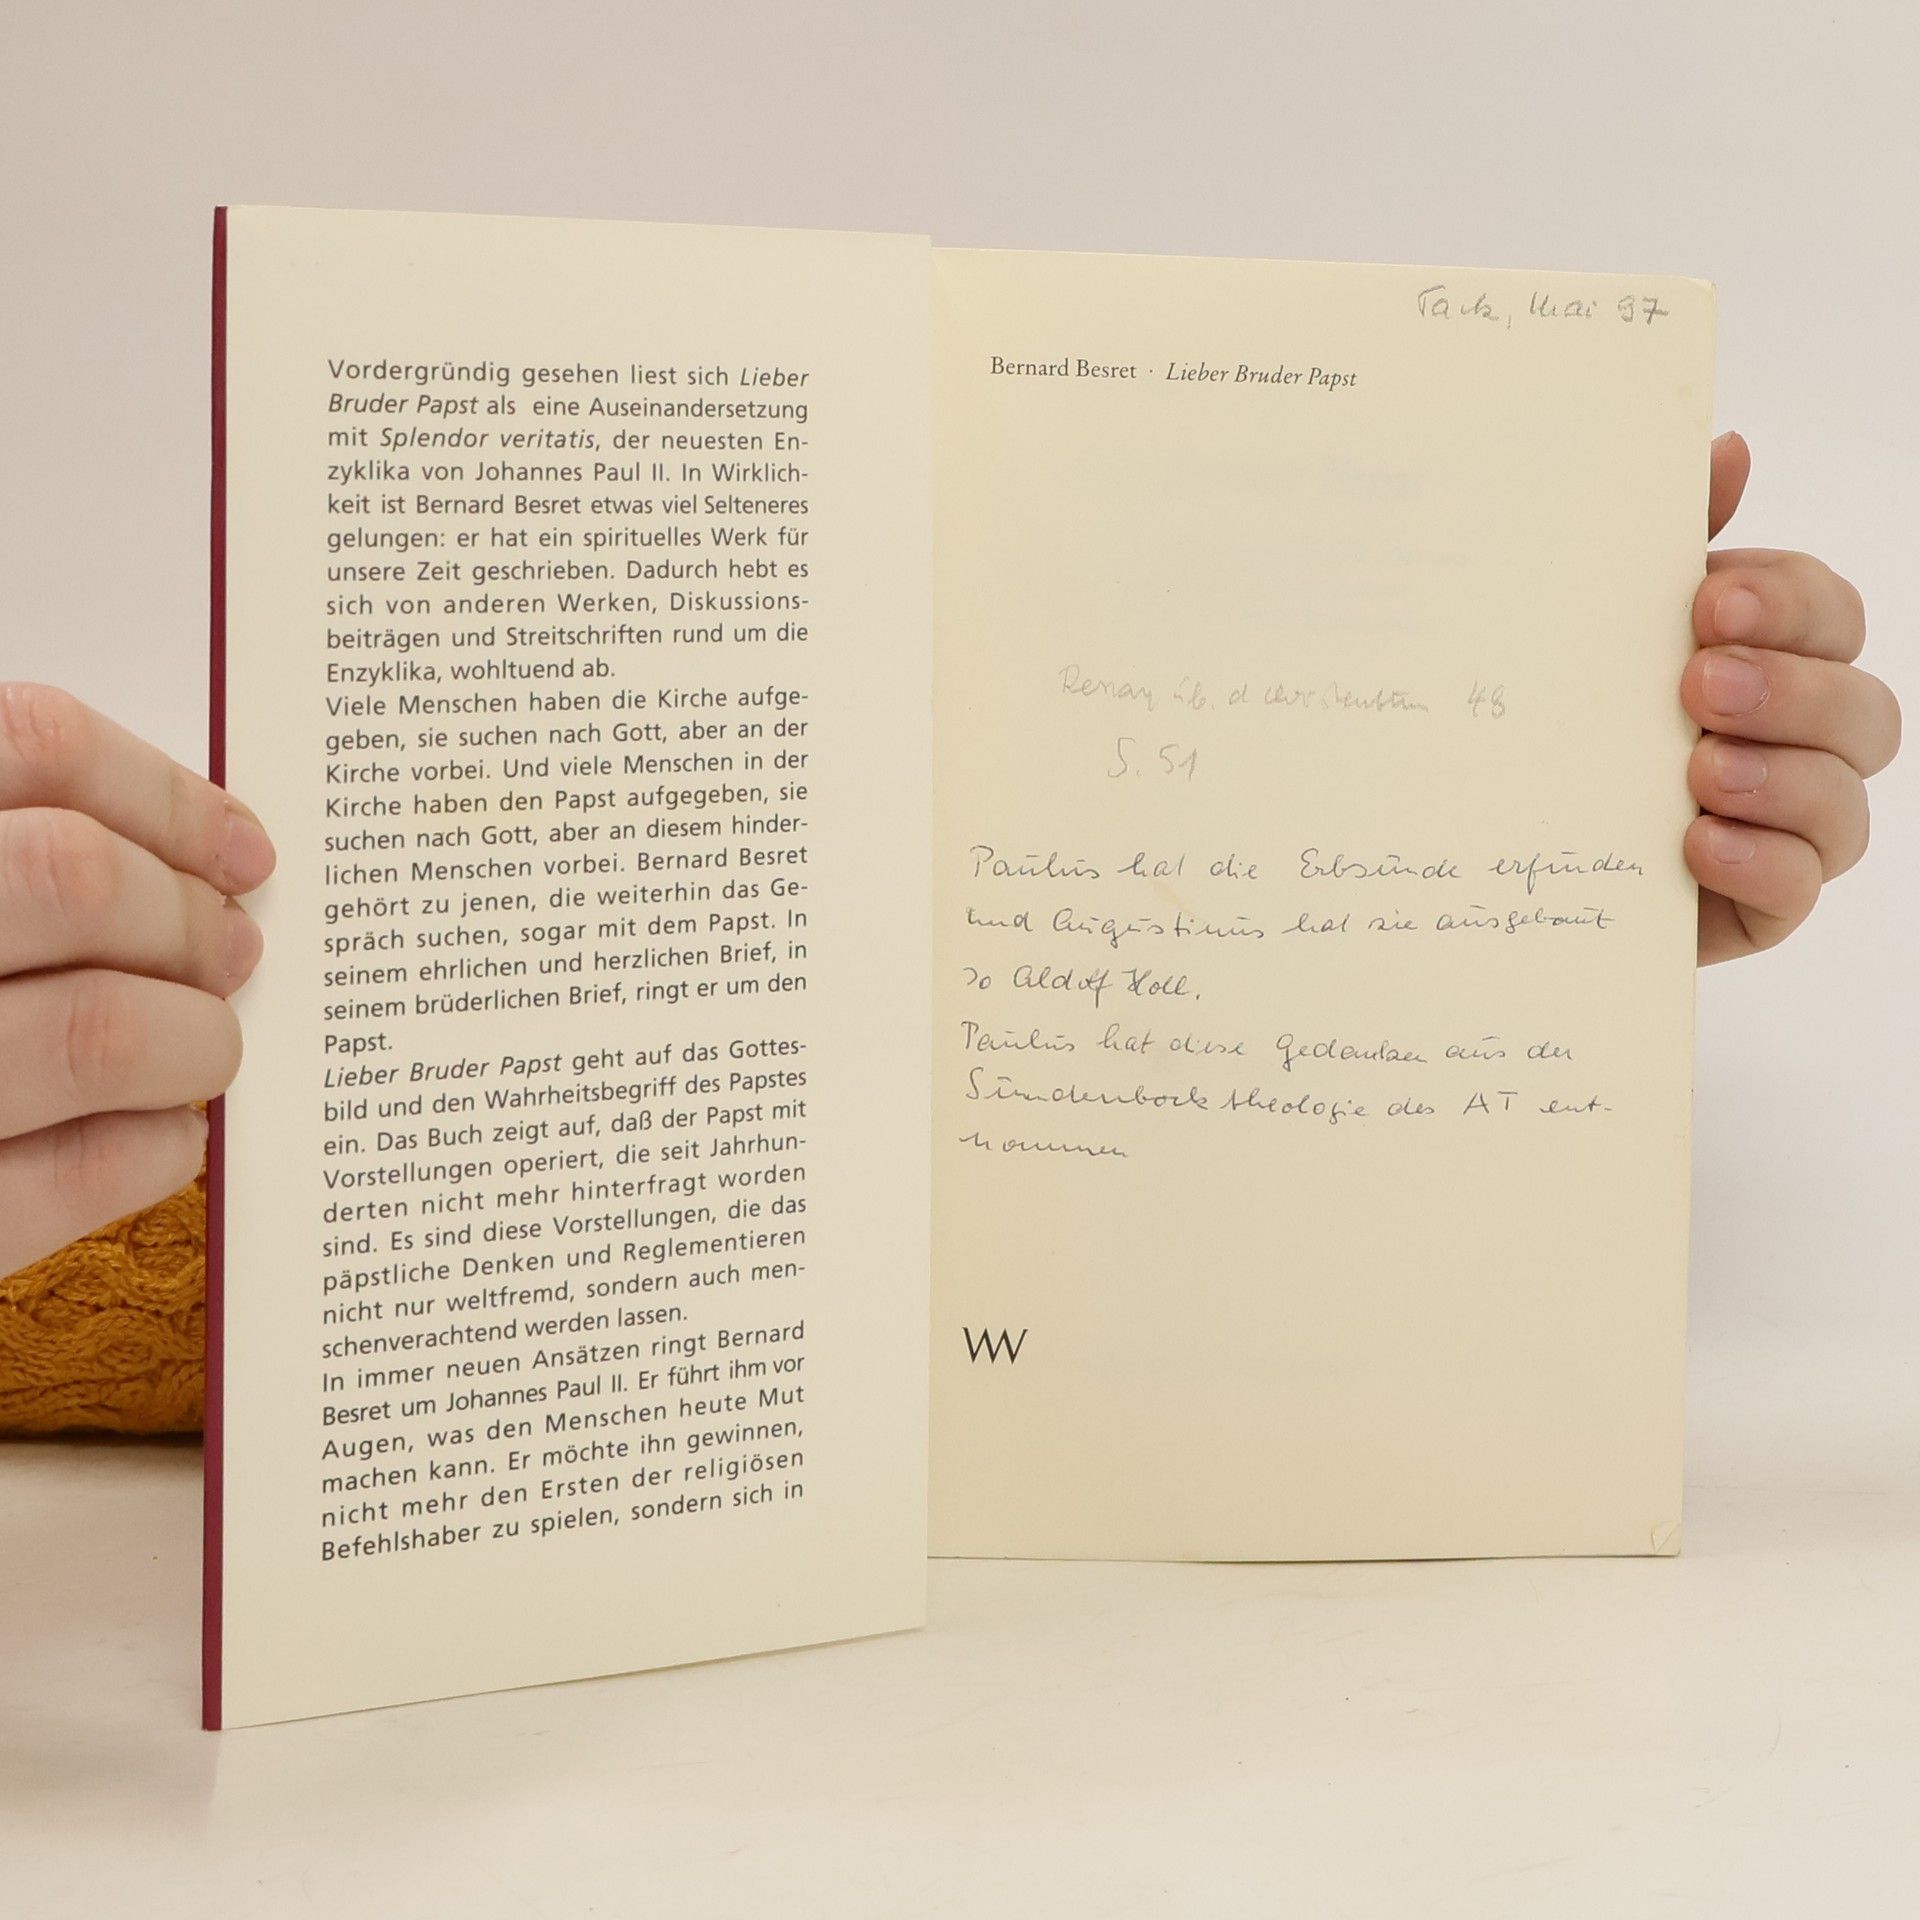 Vordergründig gesehen liest sich Lieber
Bruder Papst als eine Auseinandersetzung
mit Splendor veritatis, der neuesten En-
zyklika von Johannes Paul II. In Wirklich-
keit ist Bernard Besret etwas viel Selteneres
gelungen: er hat ein spirituelles Werk für
unsere Zeit geschrieben. Dadurch hebt es
sich von anderen Werken, Diskussions-
beiträgen und Streitschriften rund um die
Enzyklika, wohltuend ab.
Viele Menschen haben die Kirche aufge-
geben, sie suchen nach Gott, aber an der
Kirche vorbei. Und viele Menschen in der
Kirche haben den Papst aufgegeben, sie
suchen nach Gott, aber an diesem hinder-
lichen Menschen vorbei. Bernard Besret
gehört zu jenen, die weiterhin das Ge-
spräch suchen, sogar mit dem Papst. In
seinem ehrlichen und herzlichen Brief, in
seinem brüderlichen Brief, ringt er um den
Papst.
Lieber Bruder Papst geht auf das Gottes-
bild und den Wahrheitsbegriff des Papstes
ein. Das Buch zeigt auf, daß der Papst mit
Vorstellungen operiert, die seit Jahrhun-
derten nicht mehr hinterfragt worden
sind. Es sind diese Vorstellungen, die das
päpstliche Denken und Reglementieren
nicht nur weltfremd, sondern auch men-
schenverachtend werden lassen.
In immer neuen Ansätzen ringt Bernard
Besret um Johannes Paul II. Er führt ihm vor
Augen, was den Menschen heute Mut
machen kann. Er möchte ihn gewinnen,
nicht mehr den Ersten der religiösen
Befehlshaber zu spielen, sondern sich in
Mai 97
Bernard Besret · Lieber Bruder Papst
üb. d 
S. 51
Paulus hat die Erbsünde erfunden
und Augustinus hat sie ausgebaut
so Adolf Holl.
Paulus hat diese Gedanken aus der
Sündenbocktheologie des AT ent-
nommen
W